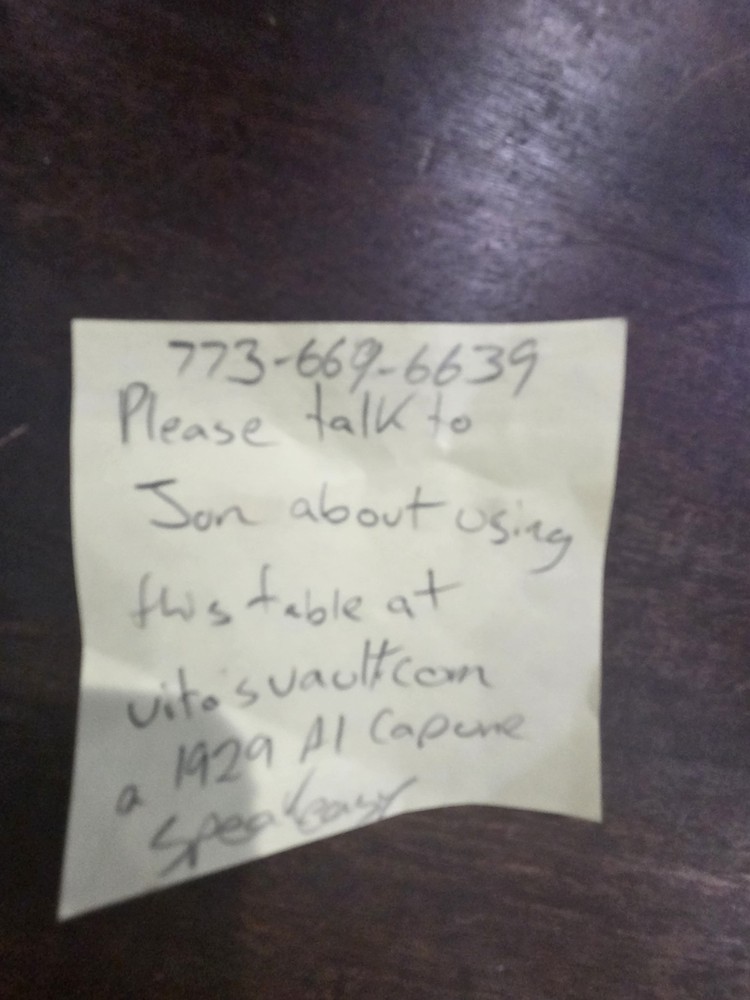 773-669-6639
Please talk to
Jon about using
this table at
vito's vault.com
a 1929 Al Capone
speakeasy